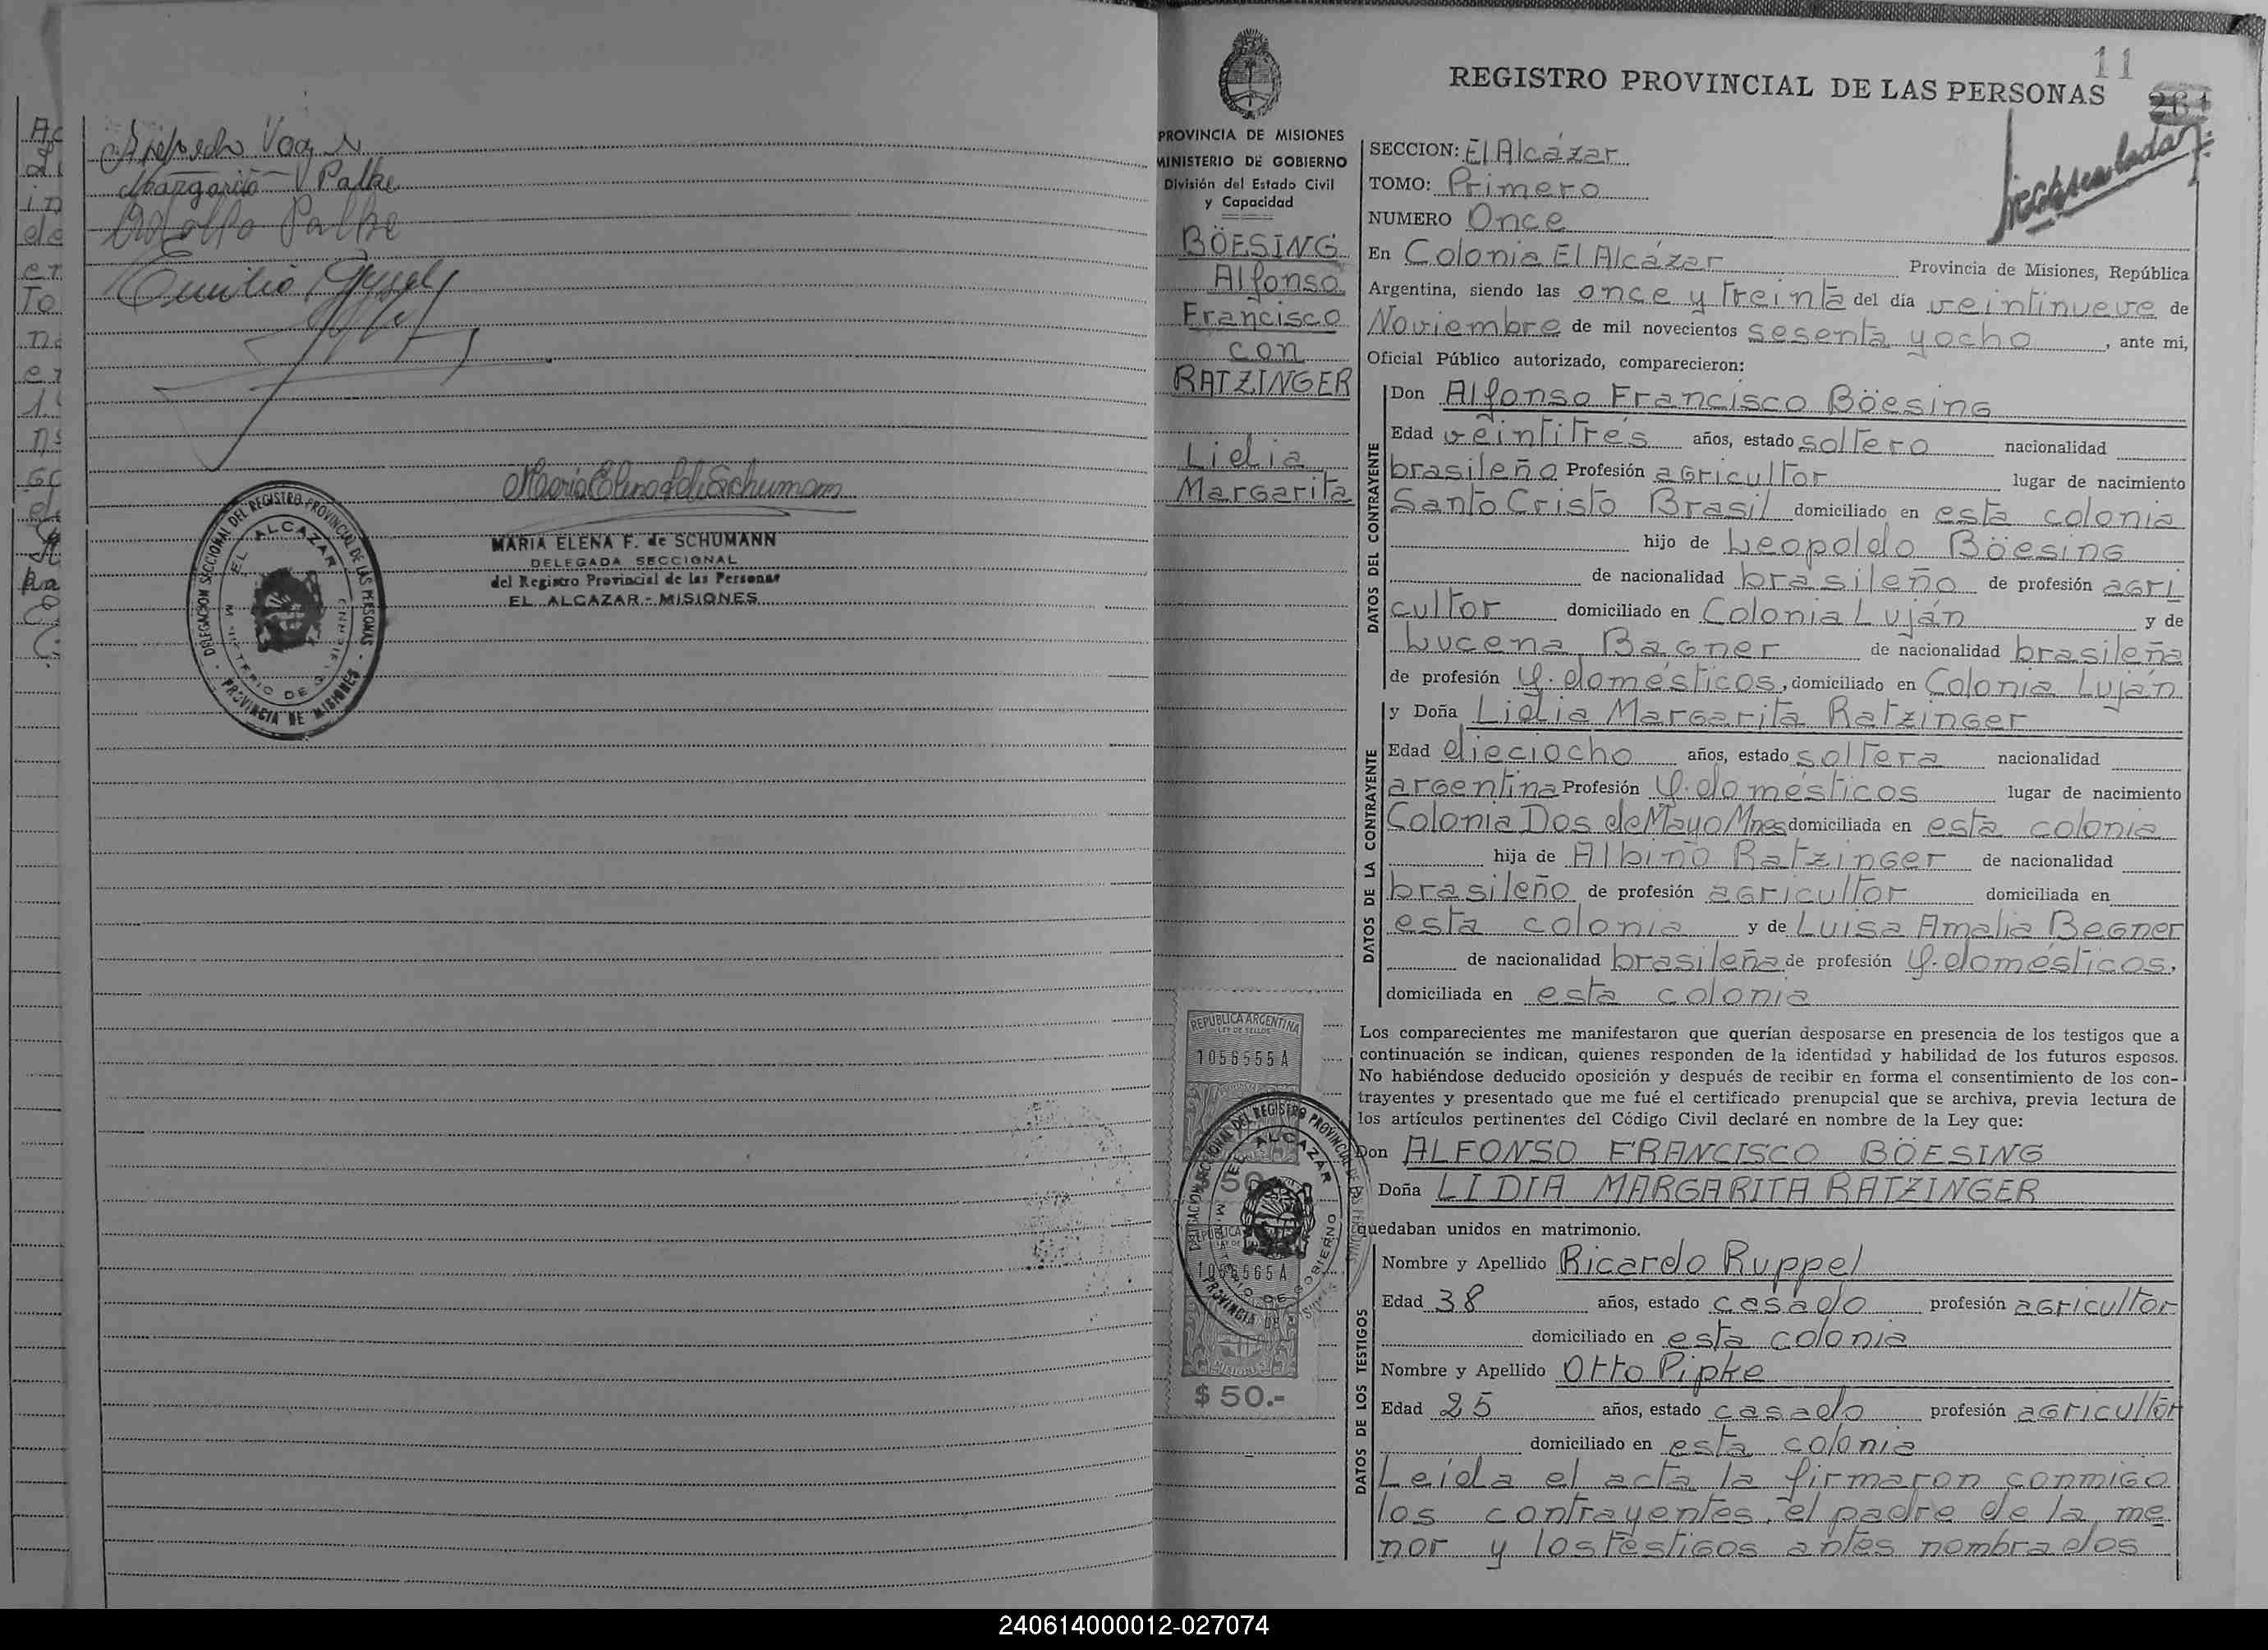 Margarita Palke
Adolfo Palke
Emilio
MARIA ELENA F. de SCHUMANN
DELEGADA SECCIONAL
del Registro Provincial de las Personas
EL ALCAZAR - MISIONES
DELEGACION SECCIONAL DEL REGISTRO PROVINCIAL DE LAS PERSONAS
EL ALCAZAR
PROVINCIA DE MISIONES
11
REGISTRO PROVINCIAL DE LAS PERSONAS
PROVINCIA DE MISIONES
MINISTERIO DE GOBIERNO
División del Estado Civil
y Capacidad
BÖESING
Alfonso
Francisco
con
RATZINGER
Lidia
Margarita
SECCION: El Alcázar
TOMO: Primero
NUMERO Once
En Colonia El Alcázar Provincia de Misiones, República
Argentina, siendo las once y treinta del día veintinueve de
Noviembre de mil novecientos sesenta y ocho, ante mi,
Oficial Público autorizado, comparecieron:
DATOS DEL CONTRAYENTE
Don Alfonso Francisco Böesing
Edad veintitrés años, estado soltero nacionalidad
brasileño Profesión agricultor lugar de nacimiento
Santo Cristo Brasil domiciliado en esta colonia
hijo de Leopoldo Böesing
de nacionalidad brasileño de profesión agri
cultor domiciliado en Colonia Luján y de
Lucena Bagner de nacionalidad brasileña
de profesión q. domésticos, domiciliado en Colonia Luján
DATOS DE LA CONTRAYENTE
y Doña Lidia Margarita Ratzinger
Edad dieciocho años, estado soltera nacionalidad
argentina Profesión q. domésticos lugar de nacimiento
Colonia Dos de Mayo Mnes domiciliada en esta colonia
hija de Albino Ratzinger de nacionalidad
brasileño de profesión agricultor domiciliada en
esta colonia y de Luisa Amalia Begner
de nacionalidad brasileña de profesión q. domésticos,
domiciliada en esta colonia
Los comparecientes me manifestaron que querían desposarse en presencia de los testigos que a
continuación se indican, quienes responden de la identidad y habilidad de los futuros esposos.
No habiéndose deducido oposición y después de recibir en forma el consentimiento de los con-
trayentes y presentado que me fué el certificado prenupcial que se archiva, previa lectura de
los artículos pertinentes del Código Civil declaré en nombre de la Ley que:
Don ALFONSO FRANCISCO BÖESING
Doña LIDIA MARGARITA RATZINGER
quedaban unidos en matrimonio.
DATOS DE LOS TESTIGOS
Nombre y Apellido Ricardo Ruppel
Edad 38 años, estado casado profesión agricultor
domiciliado en esta colonia
Nombre y Apellido Otto Pipke
Edad 25 años, estado casado profesión agricultor
domiciliado en esta colonia
Leída el acta la firmaron conmigo
los contrayentes, el padre de la me
nor y los testigos antes nombrados
REPUBLICA ARGENTINA
LEY DE SELLOS
1056555 A
$ 50.-
240614000012-027074